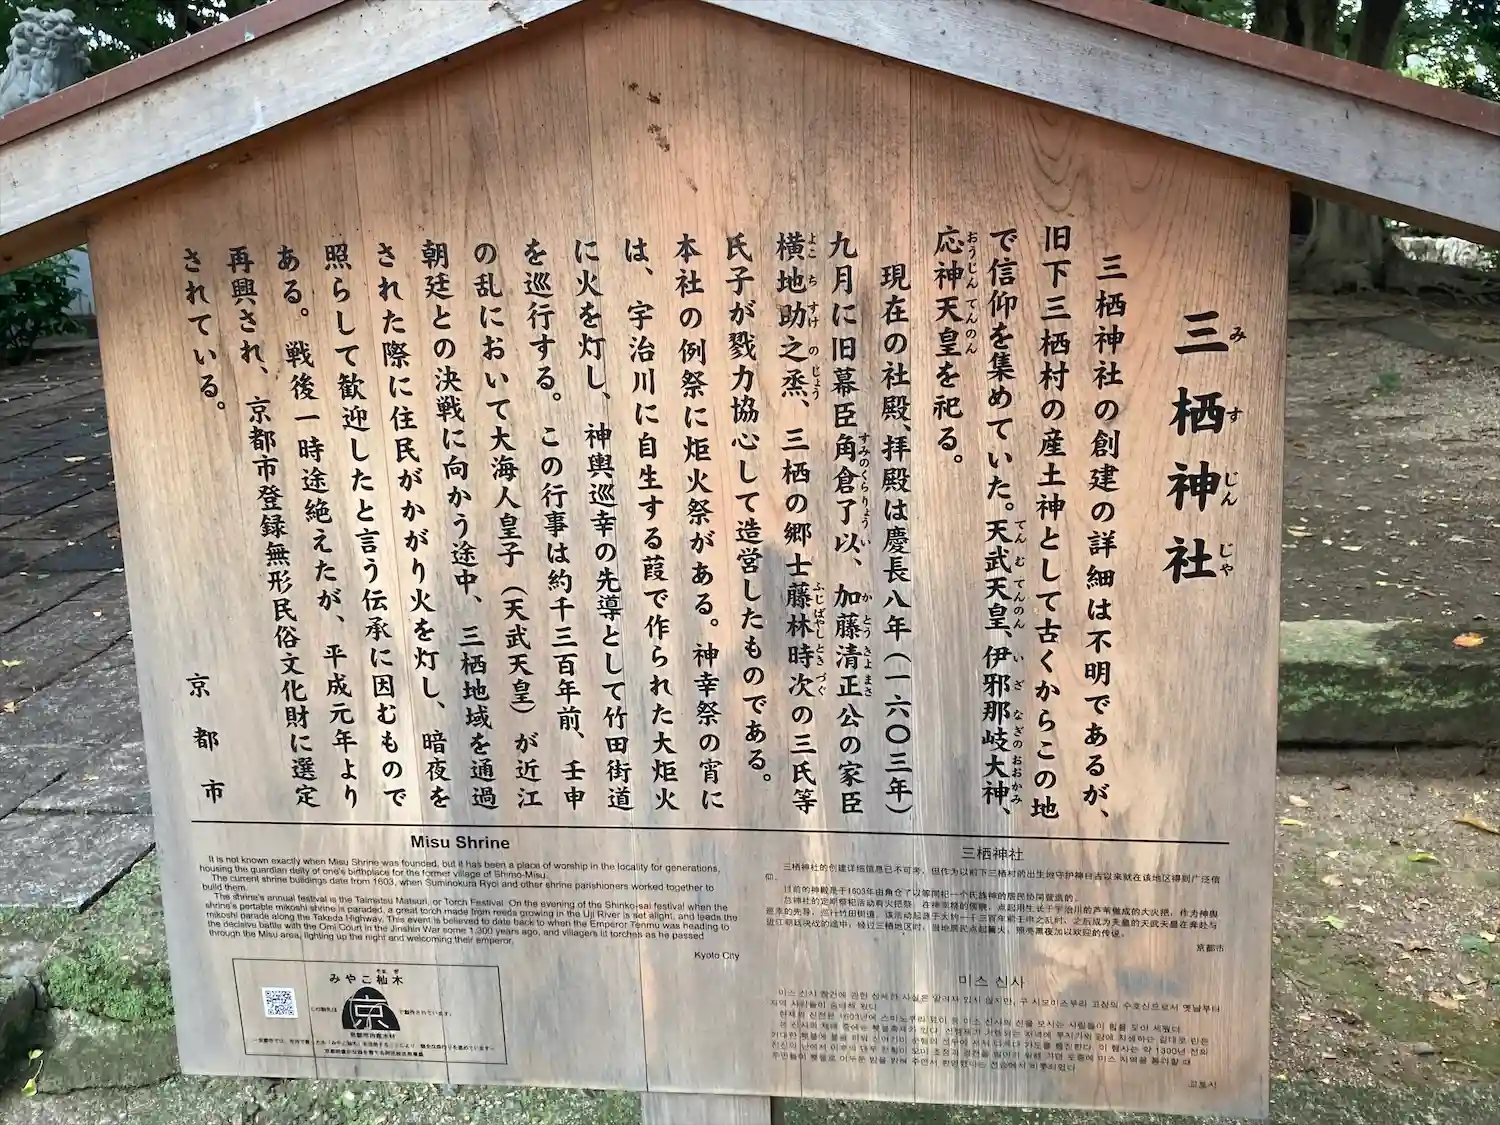 三栖神社
みすじんじゃ
三栖神社の創建の詳細は不明であるが、
旧下三栖村の産土神として古くからこの地
で信仰を集めていた。天武天皇、伊邪那岐大神、
てんむてんのん いざなぎのおおかみ
応神天皇を祀る。
おうじんてんのん
現在の社殿、拝殿は慶長八年(一六〇三年)
九月に旧幕臣角倉了以、加藤清正公の家臣
すみのくらりょうい かとうきよまさ
横地助之烝、三栖の郷士藤林時次の三氏等
よこちすけのじょう ふじばやしときつぐ
氏子が戮力協心して造営したものである。
本社の例祭に炬火祭がある。神幸祭の宵に
は、宇治川に自生する葭で作られた大炬火
に火を灯し、神輿巡幸の先導として竹田街道
を巡行する。この行事は約千三百年前、壬申
の乱において大海人皇子(天武天皇)が近江
朝廷との決戦に向かう途中、三栖地域を通過
された際に住民がかがり火を灯し、暗夜を
照らして歓迎したと言う伝承に因むもので
ある。戦後一時途絶えたが、平成元年より
再興され、京都市登録無形民俗文化財に選定
されている。
京都市
Misu Shrine
It is not known exactly when Misu Shrine was founded, but it has been a place of worship in the locality for generations,
housing the guardian deity of one's birthplace for the former village of Shimo-Misu.
The current shrine buildings date from 1603, when Suminokura Ryoi and other shrine parishioners worked together to
build them.
The shrine's annual festival is the Taimatsu Matsuri, or Torch Festival. On the evening of the Shinko-sai festival when the
shrine's portable mikoshi shrine is paraded, a great torch made from reeds growing in the Uji River is set alight, and leads the
mikoshi parade along the Takeda Highway. This event is believed to date back to when the Emperor Tenmu was heading to
the decisive battle with the Omi Court in the Jinshin War some 1,300 years ago, and villagers lit torches as he passed
through the Misu area, lighting up the night and welcoming their emperor.
Kyoto City
三栖神社
三栖神社的创建详细信息已不可考，但作为以前下三栖村的出生地守护神自古以来就在该地区得到广泛信
仰。
京都市
미스 신사
교토시
みやこ杣木
そまぎ
京